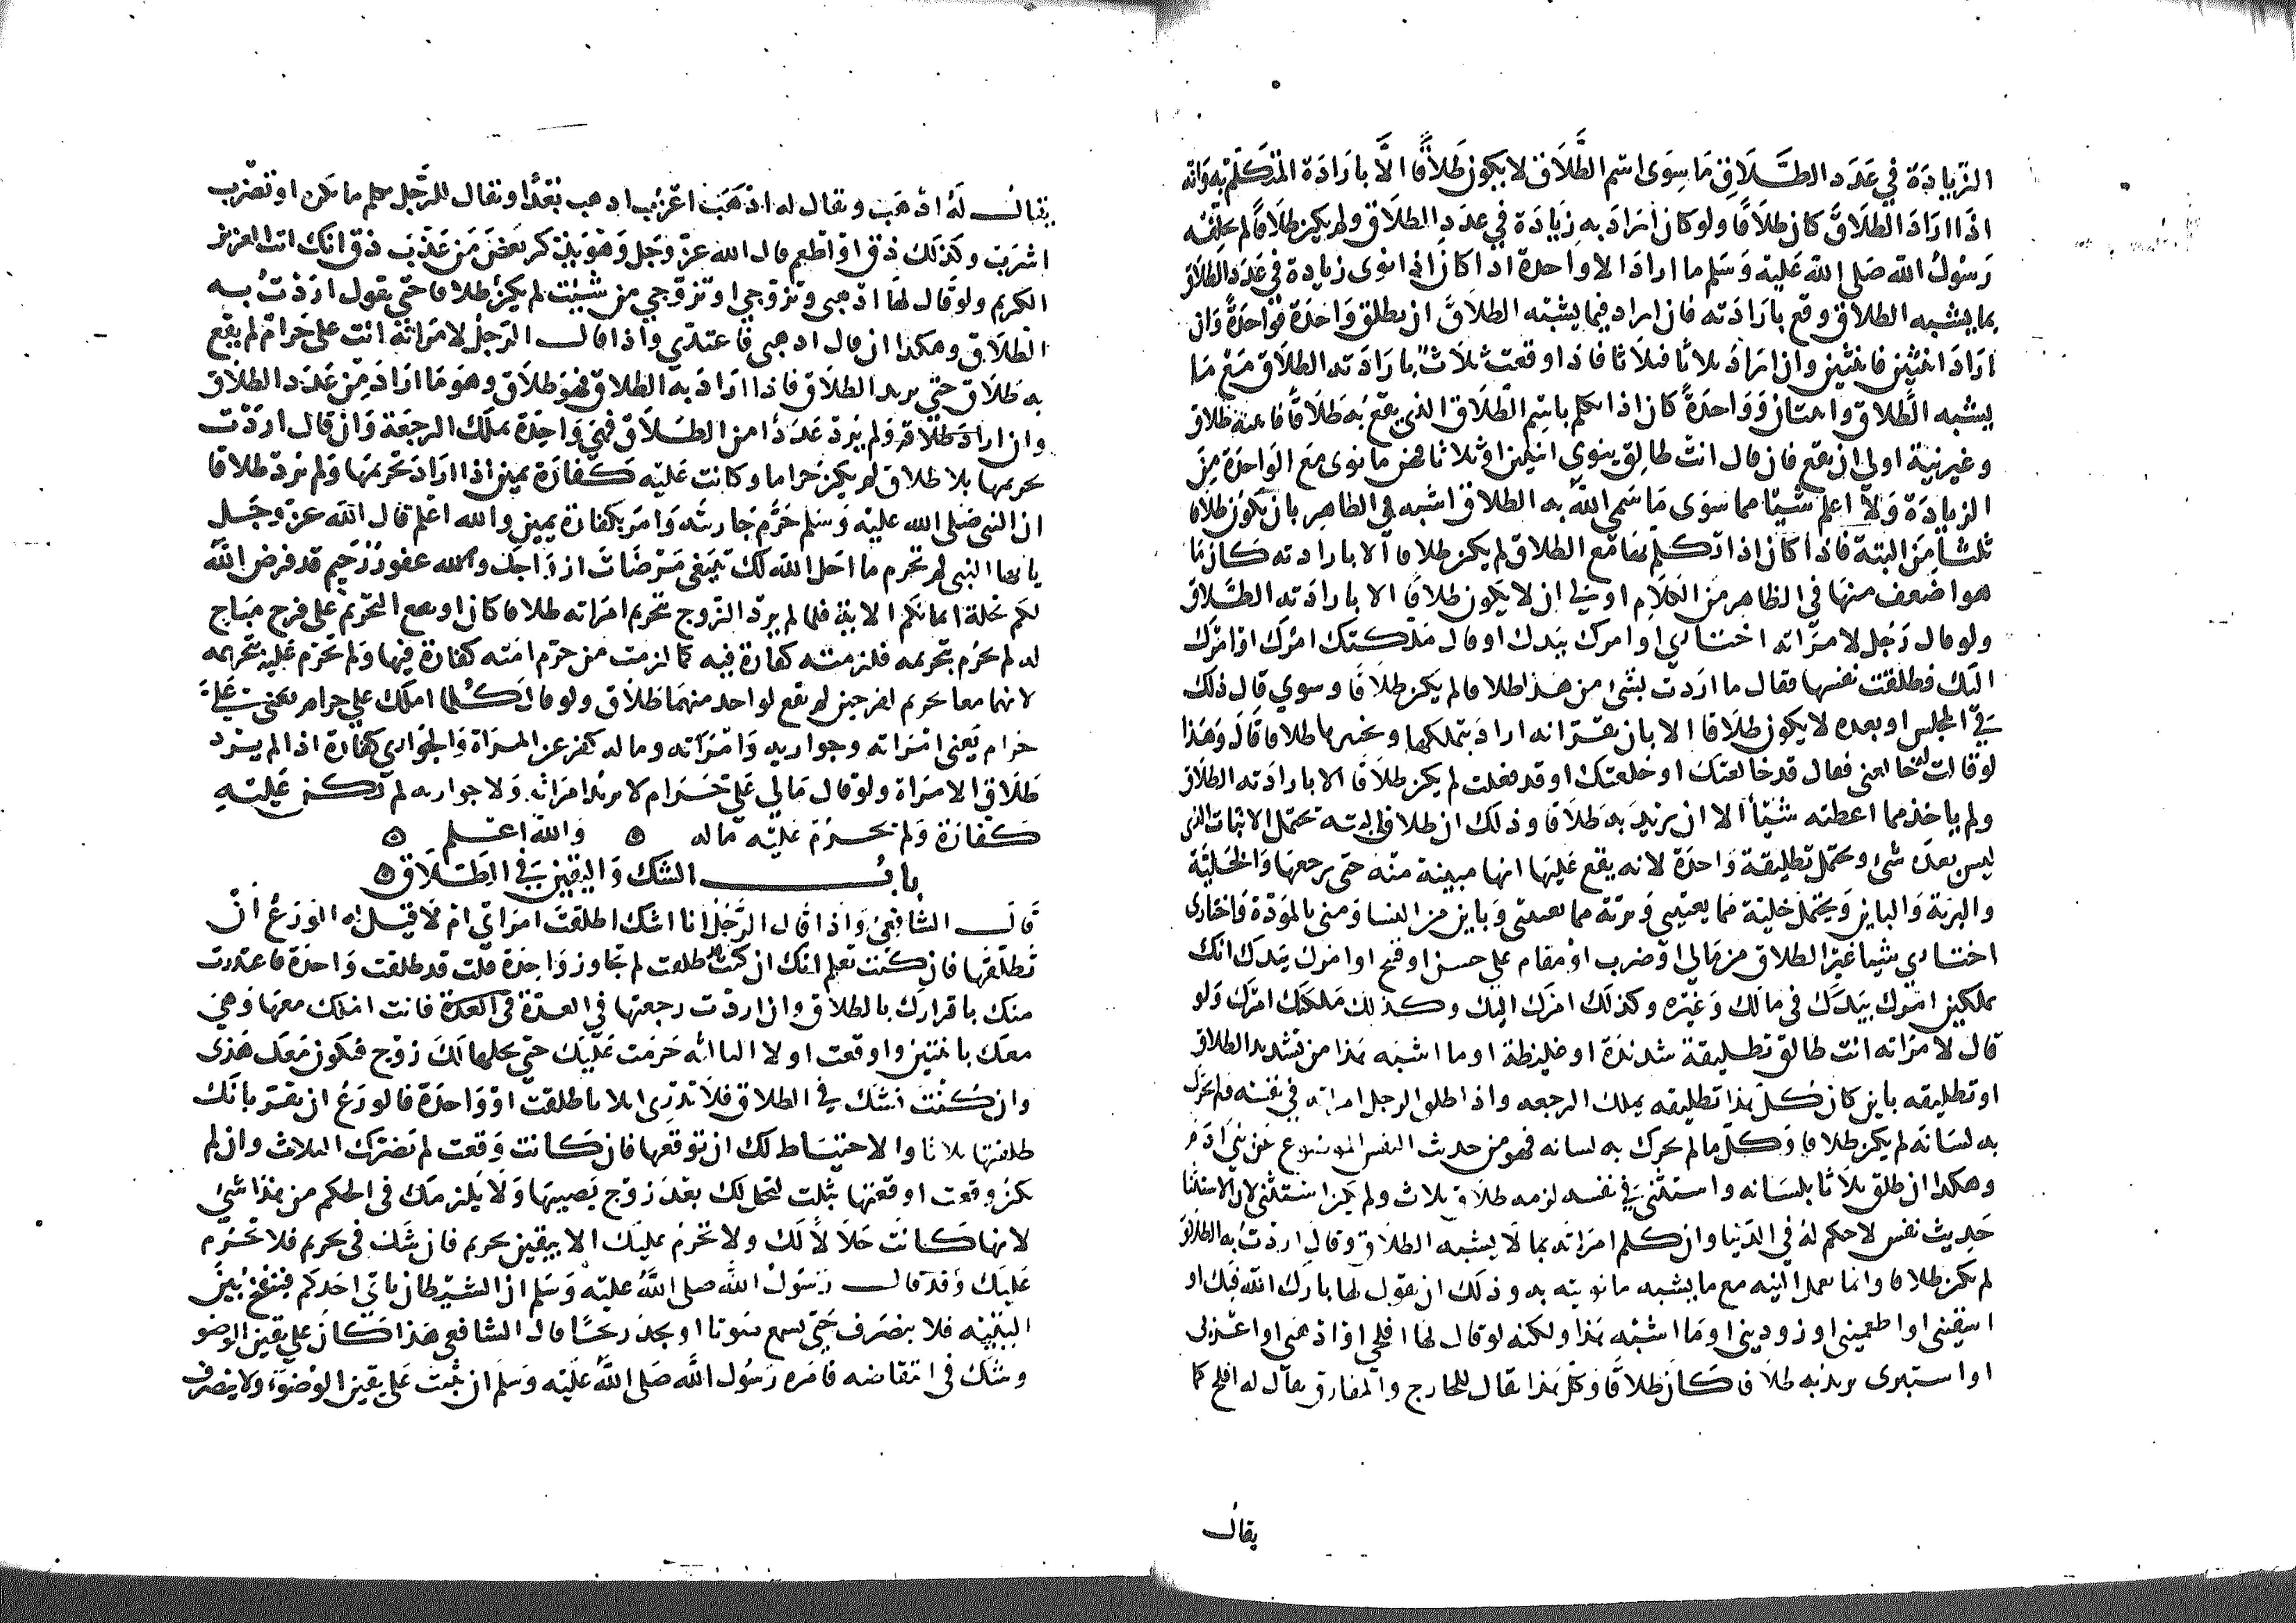 الزيادة في عدد الطلاق مما سوى اسم الطلاق لا يكون طلاقا الا بارادة المتكلم به وانه
اذا اراد الطلاق كان طلاقا ولو كان اراد به زيادة في عدد الطلاق ولم يكن طلاقا لم يحلفه
رسول الله صلى الله عليه وسلم ما اراد الا واحدة اذا كان اذا نوى زيادة في عدد الطلاق
بما يشبه الطلاق وقع بارادته فان اراد فيما يشبه الطلاق ان يطلق واحدة فواحدة وان
اراد اثنتين فاثنتين وان اراد ثلاثا فثلاثا فاذا وقعت ثلاث بارادته الطلاق مع ما
يشبه الطلاق واثنتان وواحدة كان اذا تكلم باسم الطلاق الذي يقع به طلاقا فاعنه طلاق
وغير نية اولى ان يقع فان قال انت طالق ينوي اثنتين او ثلاثا فهن ما نوى مع الواحدة من
الزيادة ولا اعلم شيئا مما سوى ما سمى الله به الطلاق اشبه في الظاهر بان يكون طلاقا
ثلثا من البتة فاذا كان اذا تكلم بها مع الطلاق لم يكن طلاقا الا بارادته كان ما
هو اضعف منها في الظاهر من الكلام اولى ان لا يكون طلاقا الا بارادته الطلاق
ولو قال رجل لامراته اختاري او امرك بيدك او قال ملكتك امرك او امرك
اليك فطلقت نفسها فقال ما اردت بشئ من هذا طلاقا لم يكن طلاقا وسوي قال ذلك
في المجلس او بعده لا يكون طلاقا الا بان يقر انه اراد بتملكها وتخييرها طلاقا قال وهذا
لو قالت له خالعني فقال قد خالعتك او خلعتك او قد فعلت لم يكن طلاقا الا بارادته الطلاق
ولم ياخذ مما اعطته شيئا الا ان يريد به طلاقا وذلك ان طلاق البتة تحتمل الاثبات الذي
ليس بعده شئ ويحتمل تطليقة واحدة لانه يقع عليها انها مبينة منه حتى يرجعها والخلية
والبرية والباين ويحتمل خلية مما يعنيني وبرية مما يعنيني وباين من النسا ومني بالمودة واختارى
اختاري شيئا غير الطلاق من مالي او ضرب او مقام على حسن او قبح او امرك بيدك انك
تملكين امرك بيدك في مالك وغيره وكذلك امرك اليك وكذلك ملكتك امرك ولو
قال لامراته انت طالق تطليقة شديدة او غليظة او ما اشبه هذا من تشديد الطلاق
او تطليقه باين كان كل هذا تطليقه يملك الرجعه واذا طلق الرجل امراته في نفسه ولم يحرك
به لسانه لم يكن طلاقا وكل ما لم يحرك به لسانه فهو من حديث النفس الموضوع عن بني ادم
وهكذا ان طلق ثلاثا بلسانه واستثنى في نفسه لزمه طلاق ثلاث ولم يكن استثنى لان الاستثنا
حديث نفس لا حكم له في الدنيا وان كلم امراته بما لا يشبه الطلاق وقال اردت به الطلاق
لم يكن طلاقا وانما تعمل النيه مع ما يشبه ما نويته به وذلك ان يقول لها بارك الله فيك او
اسقيني او اطعميني او زوديني او ما اشبه هذا ولكنه لو قال لها افلحي او اذهبي او اعزبي
او استبرى يريد به طلاقا كان طلاقا وكل هذا يقال للخارج والمفارق يقال له افلح كما
يقال
يقال له اذهب ويقال له اذهب اعزب اذهب بعدا ويقال للرجل يكلم ما يكره او يضرب
اشرب وكذلك ذق او اطعم قال الله عز وجل وهو يذكر بعض من عذب ذق انك انت العزيز
الكريم ولو قال لها اذهبي وتزوجي او تزوجي من شيت لم يكن طلاقا حتى يقول اردت به
الطلاق وهكذا ان قال اذهبى فاعتدي واذا قال الرجل لامراته انت على حرام لم يقع
به طلاق حتى يريد الطلاق فاذا اراد به الطلاق فهو طلاق وهو ما اراد من عدد الطلاق
وان اراد طلاقه ولم يرد عددا من الطلاق فهي واحدة يملك الرجعة وان قال اردت
تحريمها بلا طلاق لم يكن حراما وكانت عليه كفارة يمين اذا اراد تحريمها ولم يرد طلاقا
ان النبي صلى الله عليه وسلم حرم جاريته وامر بكفارة يمين والله اعلم قال الله عز وجل
يا ايها النبي لم تحرم ما احل الله لك تبتغي مرضات ازواجك والله غفور رحيم قد فرض الله
لكم تحلة ايمانكم الاية فلما لم يرد الزوج بتحريم امراته طلاقا كان اوقع التحريم على فرج مباح
له لم يحرم بتحريمه فلزمته كفارة فيه كما لزمت من حرم امته كفارة فيها ولم تحرم عليه بتحريمه
لانهما معا تحريم لفرجين لم يقع لواحد منهما طلاق ولو قال كلما املك علي حرام يعني علي
حرام يعنى امراته وجواريه وامراته وماله كفر عن المراة والجواري كفارة اذا لم يرد
طلاق الامراة ولو قال مالي علي حرام لا يريد امراته ولا جواريه لم تكن عليه
كفارة ولم يحرم عليه ماله ه والله اعلم ه
باب الشك واليقين في الطلاق ه
قال الشافعي واذا قال الرجل انا اشك اطلقت امراتي ام لا قيل له الورع ان
تطلقها فان كنت تعلم انك ان كنت قد طلقت لم تجاوز واحدة قلت قد طلقت واحدة فاعتدت
منك باقرارك بالطلاق وان اردت رجعتها في العدة فانت املك معها وهي
معك باثنتين واوقعت اولا الثالثه حرمت عليك حتى يحلها لك زوج فتكون معك هذى
وان كنت تشك في الطلاق فلا تدرى اثلاثا طلقت او واحدة فالورع ان تقر بانك
طلقتها ثلاثا والاحتياط لك ان توقعها فان كانت وقعت لم تضرك الثلاث وان لم
تكن وقعت اوقعتها بثلث لتحل لك بعد زوج يصيبها ولا يلزمك في الحكم من هذا شئ
لانها كانت حلالا لك ولا تحرم عليك الا بيقين تحريم فان شك في تحريم فلا تحرم
عليك وقد قال رسول الله صلى الله عليه وسلم ان الشيطان ياتي احدكم فينفخ بين
اليتيه فلا ينصرف حتى يسمع صوتا او يجد ريحا قال الشافعي هذا كان على يقين الوضو
وشك في انتقاضه فامره رسول الله صلى الله عليه وسلم ان يثبت على يقين الوضوء ولا ينصرف